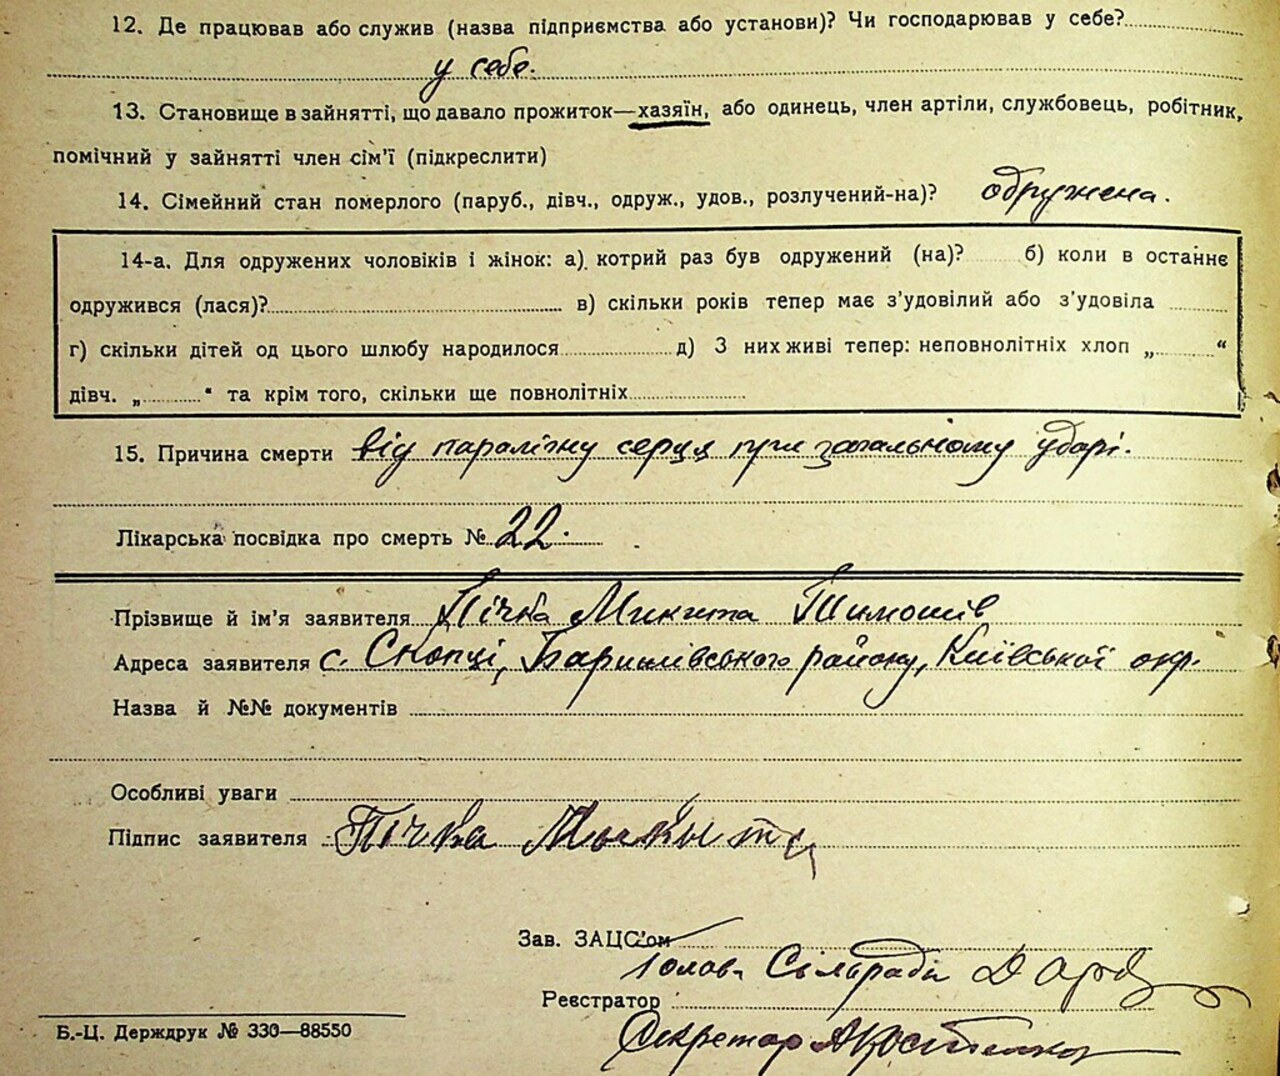 12. Де працював або служив (назва підприємства або установи)? Чи господарював у себе?
у себе.
13. Становище в зайнятті, що давало прожиток—хазяїн, або одинець, член артіли, службовець, робітник,
помічний у зайнятті член сім'ї (підкреслити)
14. Сімейний стан померлого (паруб., дівч., одруж., удов., розлучений-на)? одружена.
14-а. Для одружених чоловіків і жінок: а) котрий раз був одружений (на)? б) коли в останнє
одружився (лася)? в) скільки років тепер має з'удовілий або з'удовіла
г) скільки дітей од цього шлюбу народилося д) З них живі тепер: неповнолітніх хлоп „ “
дівч. „ “ та крім того, скільки ще повнолітніх
15. Причина смерти від паралічу серця при загальному ударі.
Лікарська посвідка про смерть № 22.
Прізвище й ім'я заявителя Пічка Микита Тимошів
Адреса заявителя с. Скопці, Баришівського району, Київської окр.
Назва й №№ документів
Особливі уваги
Підпис заявителя Пічка Мыкыта
Зав. ЗАЦС'ом
Голова Сільради
Реєстратор
Секретар
Б.-Ц. Держдрук № 330—88550